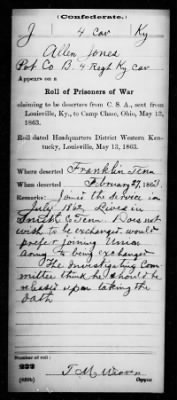 Confederate.
J 4 Cav Ky
Allen Jones
Pvt Co B. 4 Regt Ky Cav
Appears on a
Roll of Prisoners of War
claiming to be deserters from C. S. A., sent from
Louisville, Ky., to Camp Chase, Ohio, May 13,
1863.
Roll dated Headquarters District Western Ken-
tucky, Louisville, May 13, 1863.
Where deserted Franklin Tenn
When deserted February 27, 1863.
Remarks: Joined the service in
July 1862, Lives in
Smith Co Tenn. Does not
wish to be exchanged. would
prefer joining Union
army to being exchanged
The Investigating Com-
mittee think he should be
released upon taking the
oath
Number of roll:
222
(639b) T. M. Weaver
Copyist.